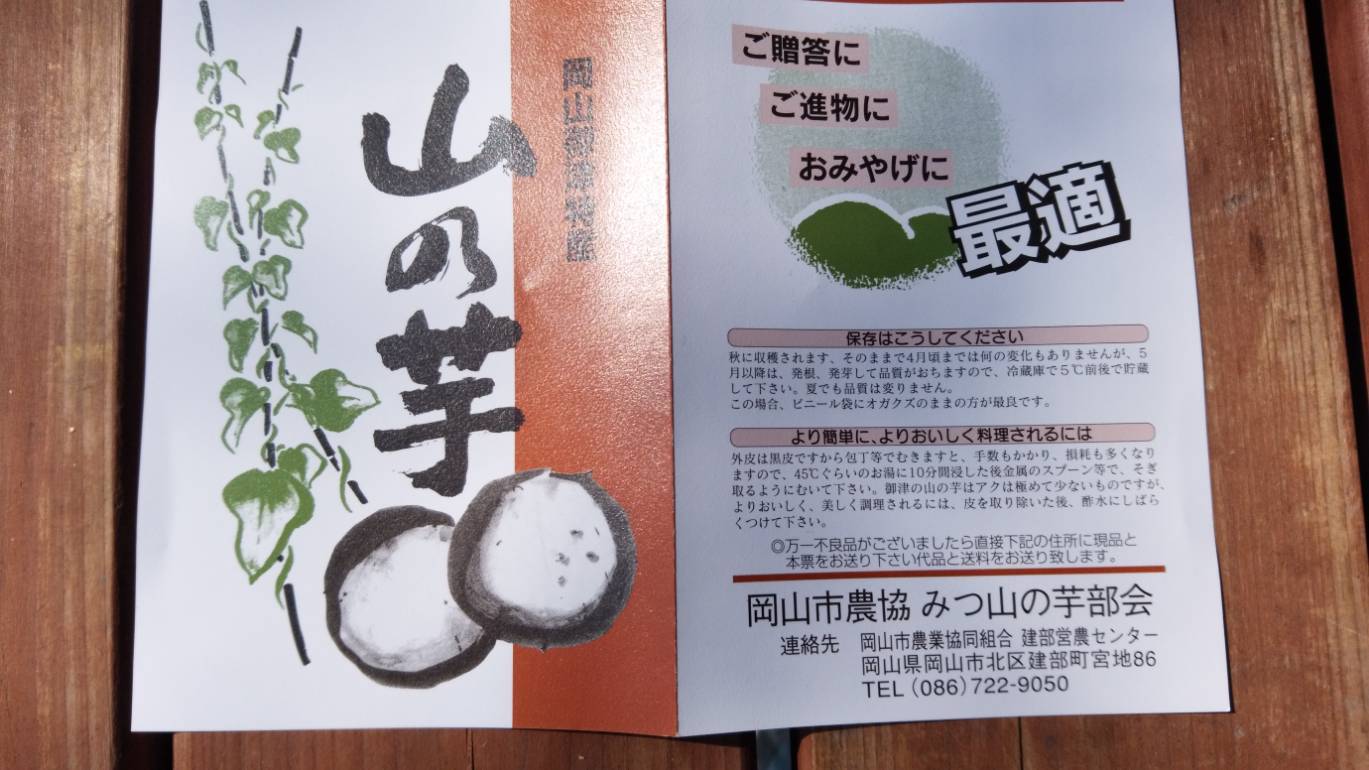 岡山御津特産
山の芋
ご贈答に
ご進物に
おみやげに
最適
保存はこうしてください
秋に収穫されます、そのままで4月頃までは何の変化もありませんが、5
月以降は、発根、発芽して品質がおちますので、冷蔵庫で5℃前後で貯蔵
して下さい。夏でも品質は変りません。
この場合、ビニール袋にオガクズのままの方が最良です。
より簡単に、よりおいしく料理されるには
外皮は黒皮ですから包丁等でむきますと、手数もかかり、損耗も多くなり
ますので、45℃ぐらいのお湯に10分間浸した後金属のスプーン等で、そぎ
取るようにむいて下さい。御津の山の芋はアクは極めて少ないものですが、
よりおいしく、美しく調理されるには、皮を取り除いた後、酢水にしばら
くつけて下さい。
◎万一不良品がございましたら直接下記の住所に現品と
本票をお送り下さい代品と送料をお送り致します。
岡山市農協 みつ山の芋部会
連絡先 岡山市農業協同組合 建部営農センター
岡山県岡山市北区建部町宮地86
TEL(086)722-9050